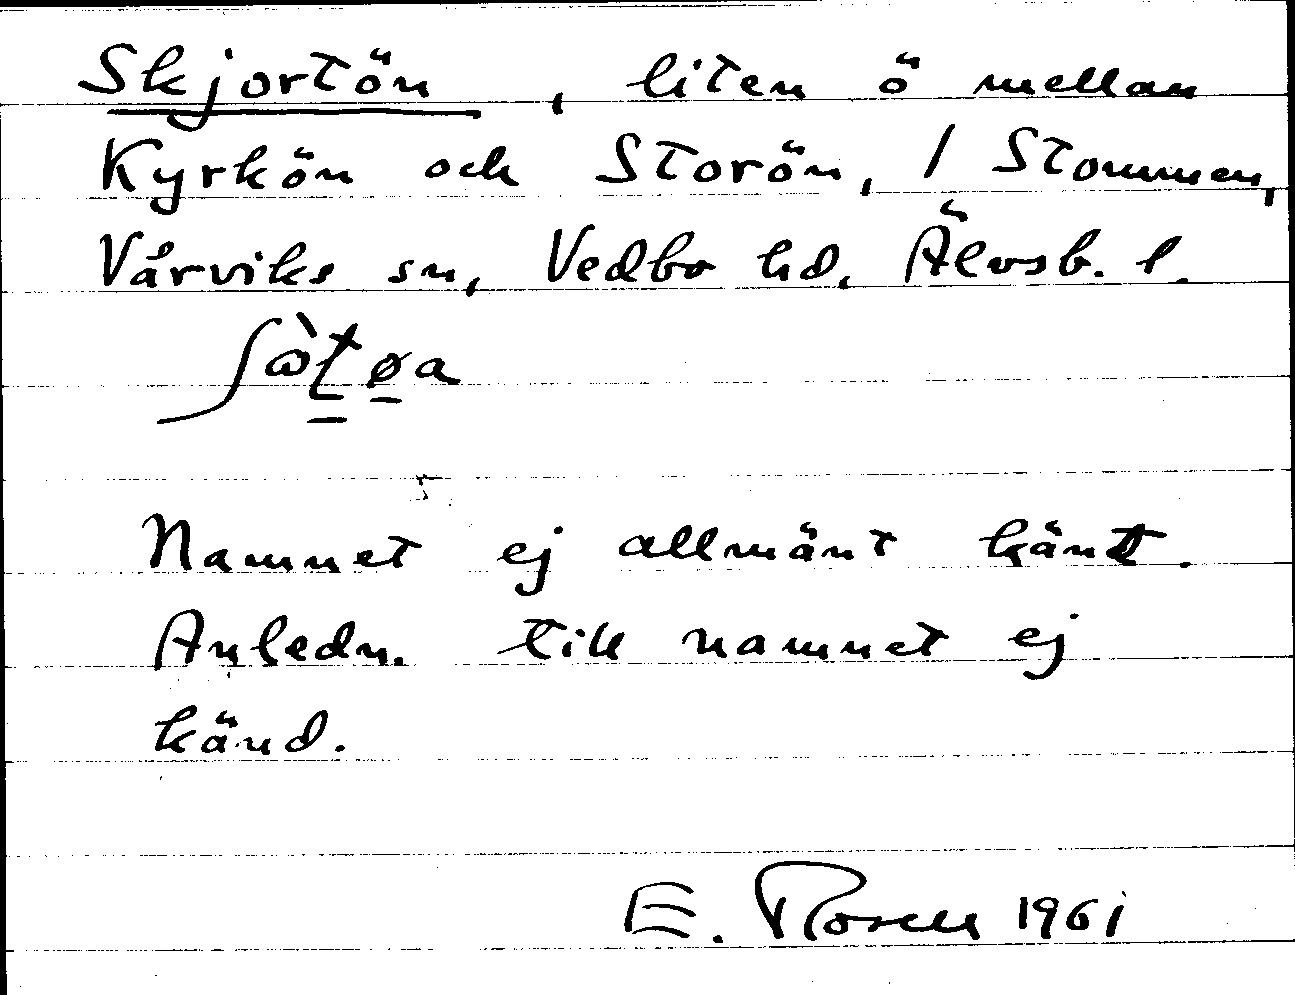 Skjortön, liten ö mellan
Kyrkön och Storön, 1 Stommen,
Vårviks sn, Vedbo hd, Älvsb. l.
Namnet ej allmänt känt.
Anledn. till namnet ej
känd.
E. Rosell 1961